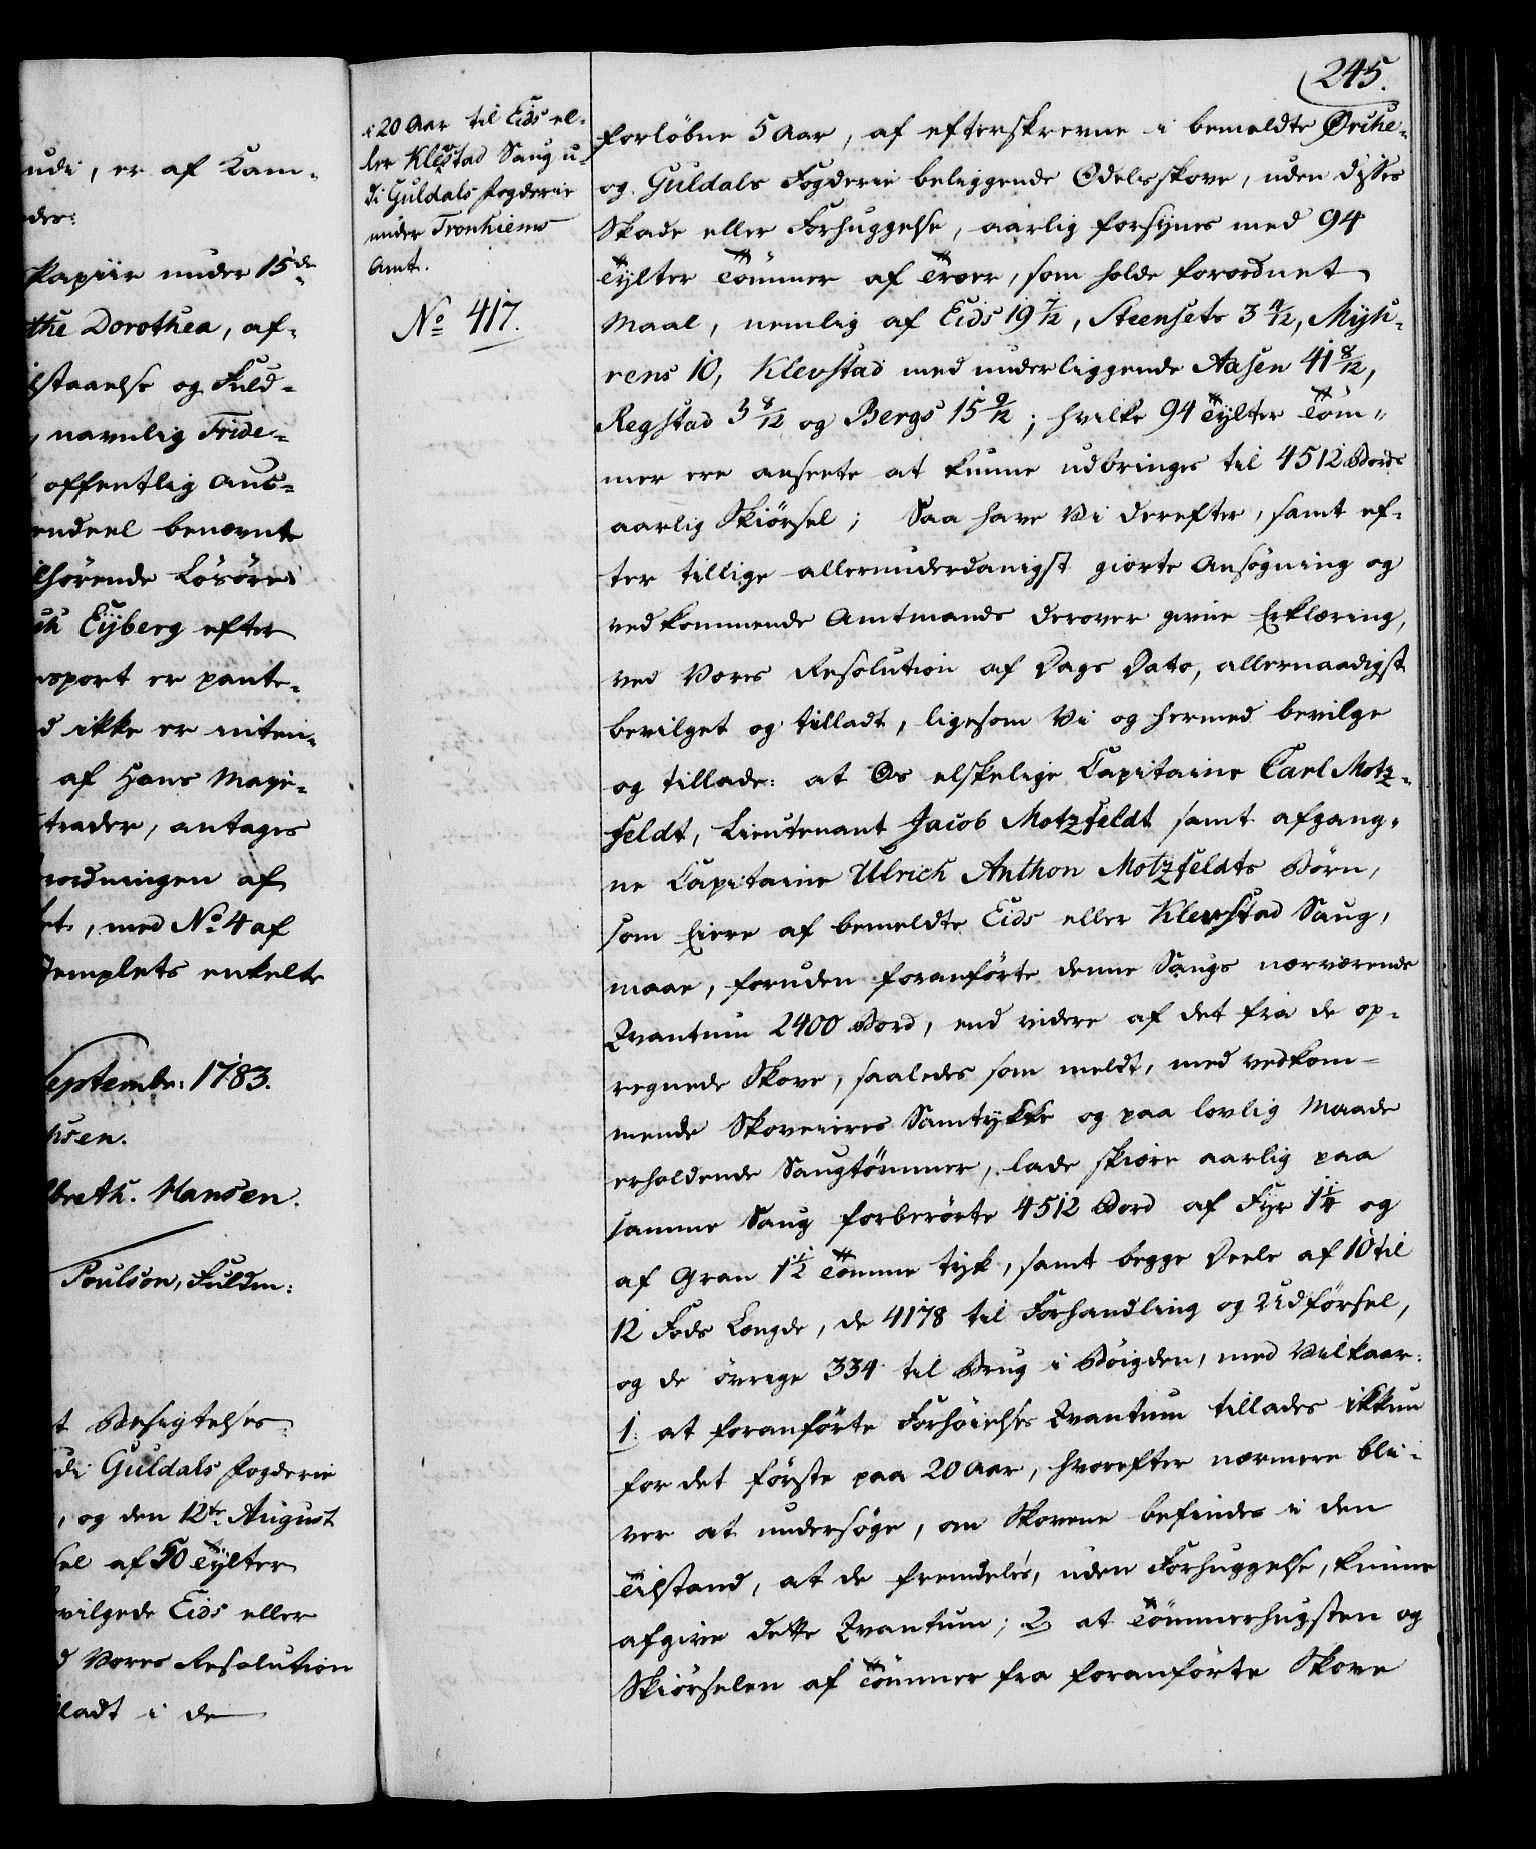 udi, er af Cam-
der:
Papiir under 15de
the Dorothea, af-
lstaaelse og Fuld-
navnlig Fride-
offentlig Auc-
endeel benævnte
lhørende Løsøre
Eyberg efter
nsport er pante-
d ikke er inten-
af Hans Maye-
trader, antages
ordningen af
et, med No 4 af
Stemplets enkelte
Septembr: 1783.
nsen.
breth. Hansen.
Poulson, Fuldm:
t Besigtelses
di Guldals Fogderie
, og den 12te August
sel af 50 Tylter
vilgede Eids eller
d Vores Resolution
ladt i de
i 20 Aar til Eids el-
ler Klevstad Saug u-
di Guldals Fogderie
under Tronhiems
Amt.
No 417.
245.
forløbne 5 Aar, af efterskrevne i bemeldte Orke-
og Guldals Fogderie beliggende Odelsskove, uden disses
Skade eller Forhuggelse, aarlig forsynes med 94
Tylter Tømmer af Træer, som holde forordnet
Maal, nemlig af Eids 19 7/12, Steensets 3 4/12, Myh-
rens 10, Klevstad med underliggende Aasen 41 8/12,
Regstad 3 8/12 og Bergs 15 9/12; hvilke 94 Tylter Tøm-
mer ere anseete at kunne udbringes til 4512 Bords
aarlig Skiørsel; Saa have Vi derefter, samt ef-
ter tillige allerunderdanigst giorte Ansøgning og
vedkommende Amtmands derover givne Erklæring,
ved Vores Resolution af Dags Dato, allernaadigst
bevilget og tilladt, ligesom Vi og hermed bevilge
og tillade: at Os elskelige Capitaine Carl Motz-
feldt, Lieutenant Jacob Motzfeldt samt afgang-
ne Capitaine Ulrich Anthon Motzfeldts Børn,
som Eiere af bemeldte Eids eller Klevstad Saug,
maae, foruden foranførte denne Saugs nærværende
Qvantum 2400 Bord, end videre af det fra de op-
regnede Skove, saaledes som meldt, med vedkom-
mende Skoveieres Samtykke og paa lovlig Maade
erholdende Saugtømmer, lade skiøre aarlig paa
samme Saug forberørte 4512 Bord af Fyr 1 1/4 og
af Gran 1 1/2 Tomme tyk, samt begge Deele af 10 til
12 Fods Længde, de 4178 til Forhandling og Udførsel,
og de øvrige 334 til Brug i Bøigden, med Vilkaar:
1: at foranførte Forhøielses Qvantum tillades ikkun
for det første paa 20 Aar, hvorefter nærmere bli-
ver at undersøge, om Skovene befindes i den
Tilstand, at de fremdeles, uden Forhuggelse, kunne
afgive dette Qvantum; 2, at Tømmerhugsten og
Skiørselen af Tømmer fra foranførte Skove